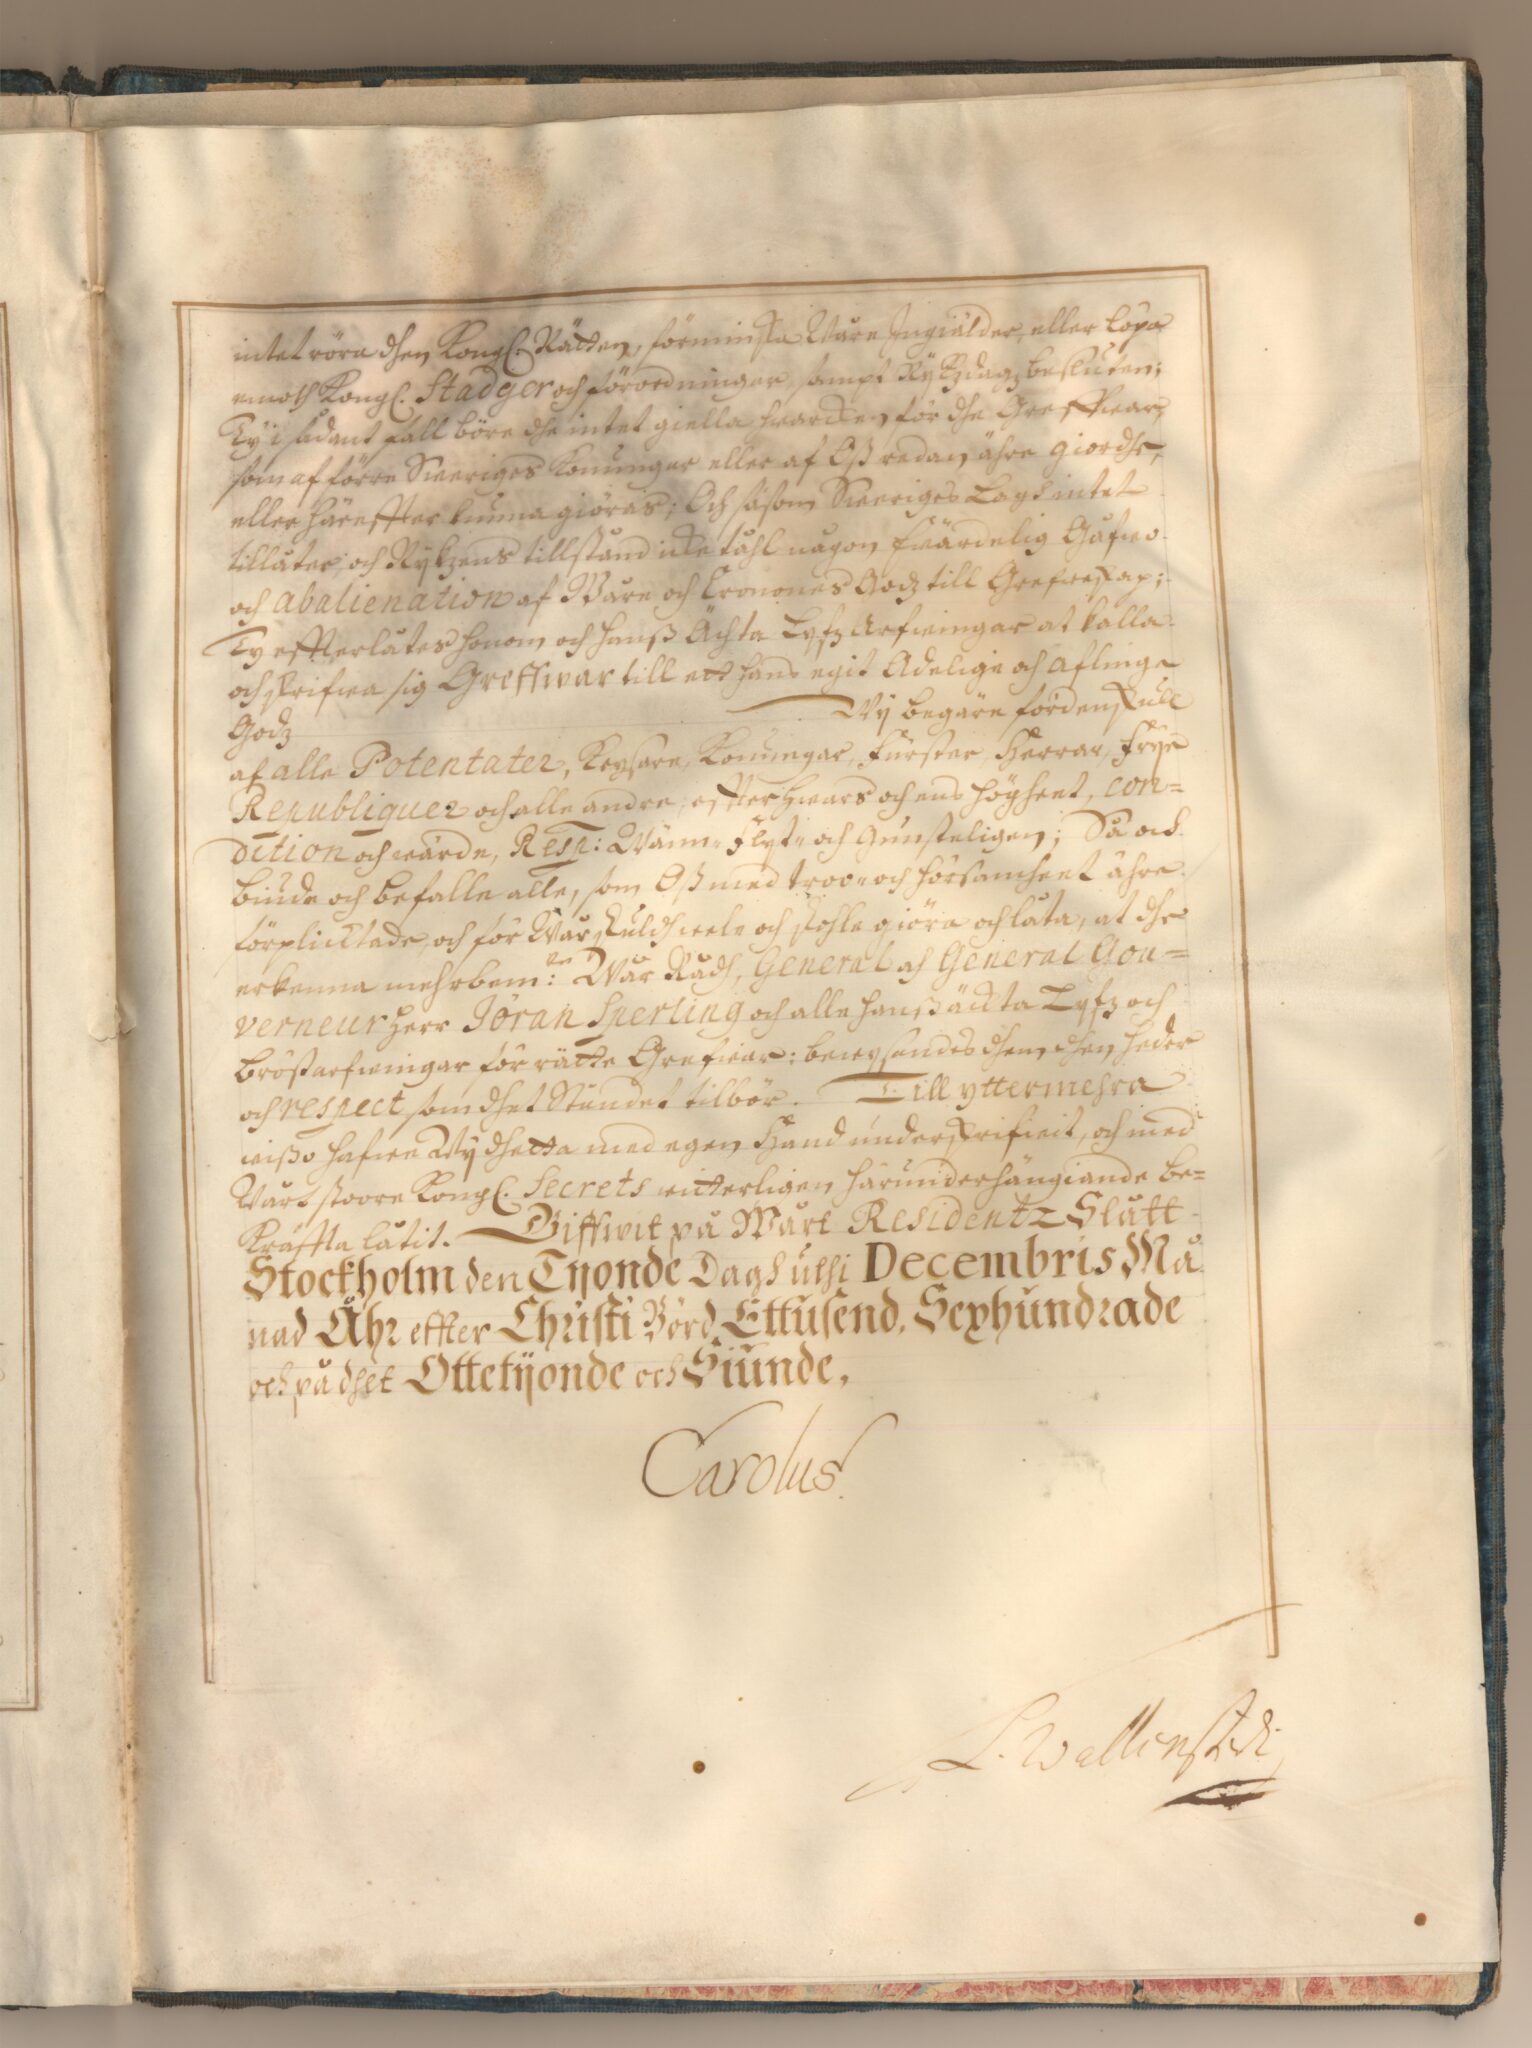 intet röra dhen Kongl. Rätten, förminska Wåre Ingiälder, eller löpa
emoth Kongl. Stadger och förordningar, sampt Rykzdagz besluten;
Ty i sådant fall böre dhe intet giella hwarcken för dhe Greffwar,
som af förre Sweriges Konungar eller af Oß redan ähre giordhe,
eller häreffter kunna giöras; Och såsom Sweriges Lagh intet
tillåter, och Rykzens tillstånd icke tåhl någon  Gåfwo-
och abalienation af Wåre och Cronones Godz till Grefweskap;
Ty effterlåtes honom och hanß Ächta Lyfz Arfwingar at kalla
och skrifwa sig Greffwar till ett hans egit Adelige och aflinge
Godz Wy begäre fördenskull
af alle Potentater, Keysare, Konungar, Fürster, Herrar, Frye
Republiquer och alle andre, effter hwars och ens högheet, con=
dition och wärde, Resp: Wänn- Flyt- och Gunsteligen; Så och
biude och befalle alle, som Oß med troo- och hörsamheet ähre
förplicktade, och för Wår skuldh wele och skohle giöra och låta, at dhe
erkenna mehrbem:te Wår Rådh, General och General Gou=
verneur Herr Jöran Sperling och alle hanß äckta Lyfz och
bröstarfwingar för rätte Grefwar: bewysandes dhem dhen heder
och respect som dhet Ståndet tilbör. Till yttermehra
wißo hafwe Wy dhetta med egen Hand underskrifwit, och med
Wårt stoore Kongl. Secrets witterligen härunderhängiande be=
kräffta låtit. Giffwit på Wårt Residentz Slått
Stockholm den Tijonde Dagh uthi Decembris Må
nad Åhr effter Christi Börd Ettusend, Sexhundrade
och på dhet Ottetijonde och Siunde,
Carolus.
L. Wallenstedt